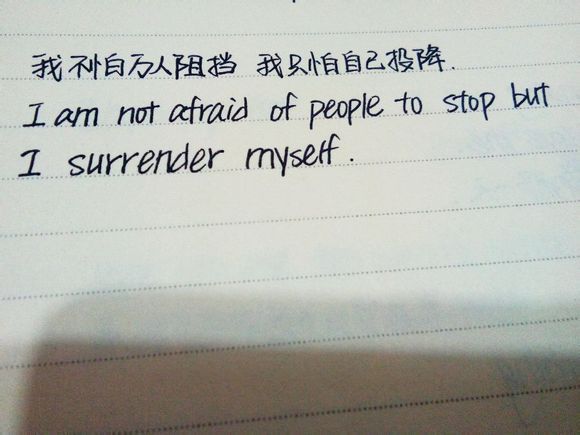 我不怕万人阻挡 我只怕自己投降.
I am not afraid of people to stop but
I surrender myself.